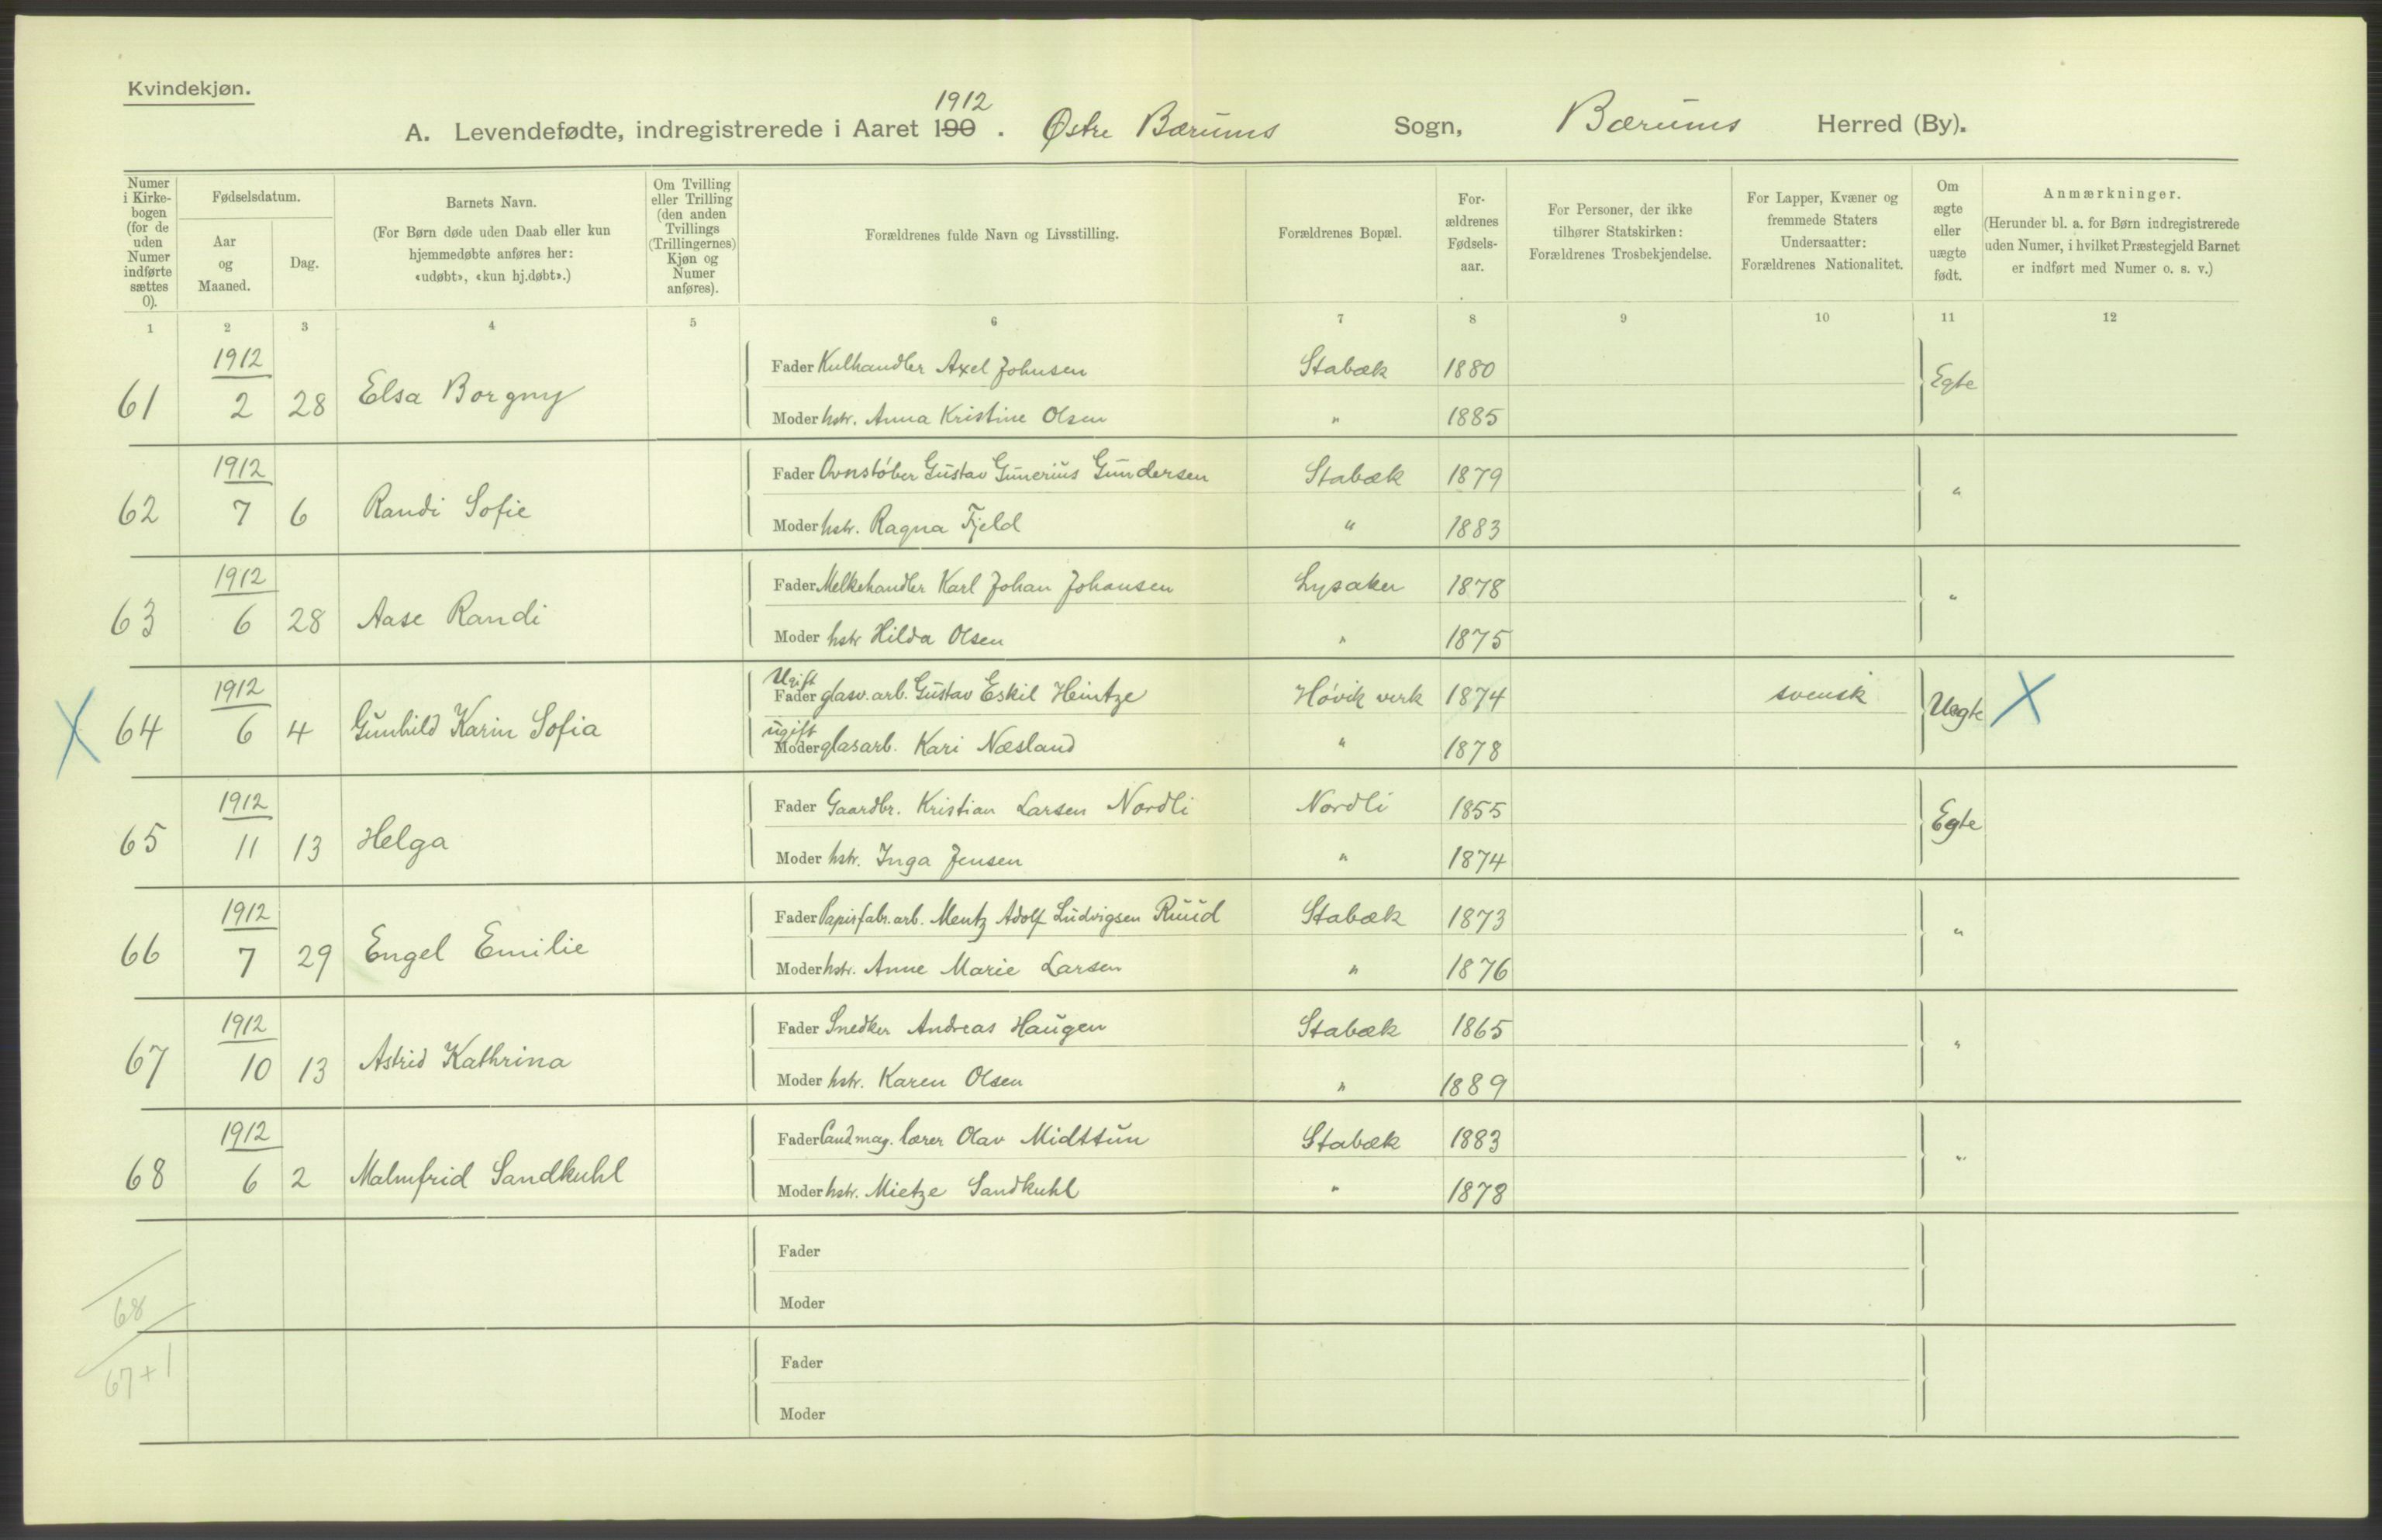 Kvindekjøn.
1912
A. Levendefødte, indregistrerede i Aaret 190 . Østre Bærums Sogn, Bærums Herred (By).
Numer i Kirkebogen (for de uden Numer indførte sættes 0).
Fødselsdatum.
Aar og Maaned.
Dag.
Barnets Navn.
(For Børn døde uden Daab eller kun hjemmedøbte anføres her: «udøbt», «kun hj.døbt».)
Om Tvilling eller Trilling (den anden Tvillings (Trillingernes) Kjøn og Numer anføres).
Forældrenes fulde Navn og Livsstilling.
Forældrenes Bopæl.
Forældrenes Fødselsaar.
For Personer, der ikke tilhører Statskirken: Forældrenes Trosbekjendelse.
For Lapper, Kvæner og fremmede Staters Undersaatter: Forældrenes Nationalitet.
Om ægte eller uægte født.
Anmærkninger.
(Herunder bl. a. for Børn indregistrerede uden Numer, i hvilket Præstegjeld Barnet er indført med Numer o. s. v.)
1 2 3 4 5 6 7 8 9 10 11 12
1912 Fader Kulhandler Axel Johnsen Stabæk 1880 Egte
61 2 28 Elsa Borgny
Moder hstr. Anna Kristine Olsen " 1885
1912 Fader Ovnstöber Gustav Gunerius Gundersen Stabæk 1879 "
62 7 6 Randi Sofie
Moder hstr. Ragna Fjeld " 1883
1912 Fader Melkehandler Karl Johan Johansen Lysaker 1878 "
63 6 28 Aase Randi
Moder hstr Hilda Olsen " 1875
Ugift
1912 Fader glasv.arb. Gustav Eskil Heintze Hövik verk 1874 svensk Uegte X
X 64 6 4 Gunhild Karin Sofia
ugift
Moder glasarb. Kari Næsland " 1878
1912 Fader Gaardbr. Kristian Larsen Nordli Nordli 1855 Egte
65 11 13 Helga
Moder hstr. Inga Jensen " 1874
1912 Fader Papirfabr.arb. Mentz Adolf Ludvigsen Ruud Stabæk 1873 "
66 7 29 Engel Emilie
Moder hstr. Anne Marie Larsen " 1876
1912 Fader Snedker Andreas Haugen Stabæk 1865 "
67 10 13 Astrid Kathrina
Moder hstr. Karen Olsen " 1889
1912 Fader Cand.mag. lærer Olav Midttun Stabæk 1883 "
68 6 2 Malmfrid Sandkuhl
Moder hstr. Mietze Sandkuhl " 1878
Fader
Moder
68
Fader
67+1
Moder